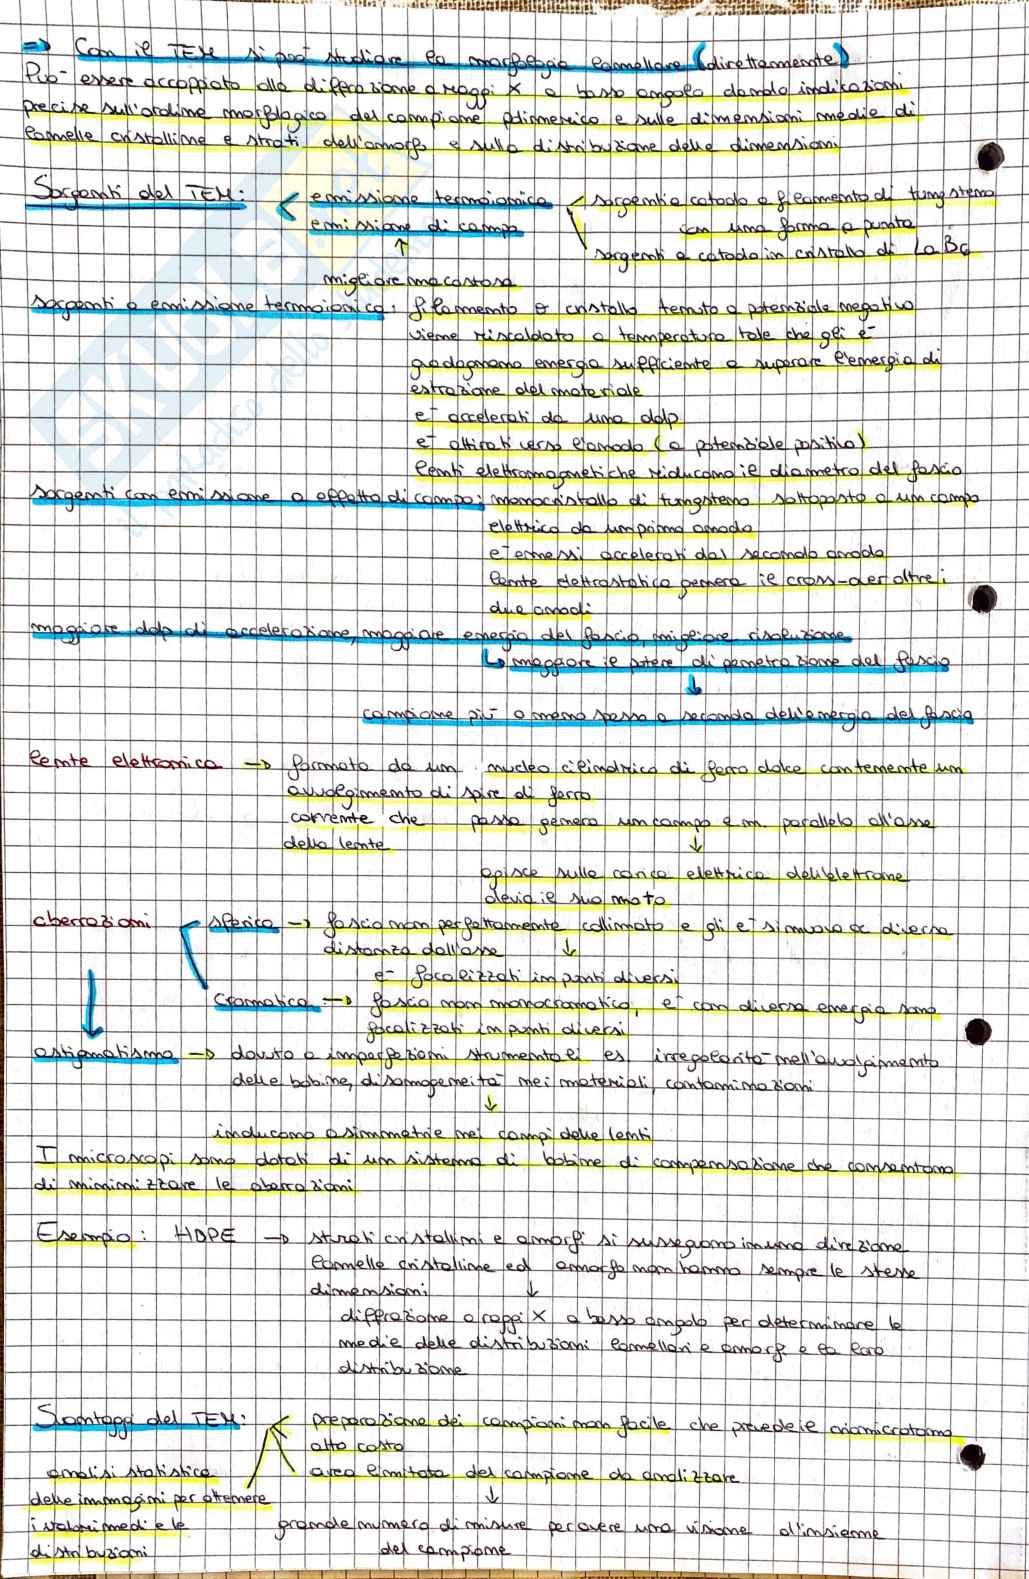 => Con il TEM si può studiare la morfologia lamellare (direttamente)
Può essere accoppiato alla diffrazione a raggi X a basso angolo dando indicazioni
precise sull'ordine morfologico del campione polimerico e sulle dimensioni medie di
lamelle cristalline e strati dell'amorfo e sulla distribuzione delle dimensioni
Sorgenti del TEM: < emissione termoionica < sorgenti a catodo a filamento di tungsteno
emissione di campo con una forma a punta
↑ sorgenti a catodo in cristallo di LaB6
migliore ma costosa
sorgenti a emissione termoionica: filamento o cristallo tenuto a potenziale negativo
viene riscaldato a temperatura tale che gli e-
guadagnano energia sufficiente a superare l'energia di
estrazione del materiale
e- accelerati da una ddp
e- attirati verso l'anodo (a potenziale positivo)
lenti elettromagnetiche riducono il diametro del fascio
sorgenti con emissione a effetto di campo: monocristallo di tungsteno sottoposto a un campo
elettrico da un primo anodo
e- emessi accelerati dal secondo anodo
lente elettrostatica genera il cross-over oltre i
due anodi
maggiore ddp di accelerazione, maggiore energia del fascio, migliore risoluzione
↳ maggiore il potere di penetrazione del fascio
↓
campione più o meno spesso a seconda dell'energia del fascio
lente elettronica → formata da un nucleo cilindrico di ferro dolce contenente un
avvolgimento di spire di ferro
corrente che passa genera un campo e.m. parallelo all'asse
della lente ↓
agisce sulla carica elettrica dell'elettrone
devia il suo moto
aberrazioni < sferica → fascio non perfettamente collimato e gli e- si muovono a diversa
distanza dall'asse ↓
e- focalizzati in punti diversi
↓ Cromatica → fascio non monocromatico, e- con diversa energia sono
focalizzati in punti diversi
astigmatismo → dovuto a imperfezioni strumentali es. irregolarità nell'avvolgimento
delle bobine, disomogeneità nei materiali, contaminazioni
↓
inducono asimmetrie nei campi delle lenti
I microscopi sono dotati di un sistema di bobine di compensazione che consentono
di minimizzare le aberrazioni
Esempio: HDPE → strati cristallini e amorfi si susseguono in una direzione
lamelle cristalline ed amorfo non hanno sempre le stesse
dimensioni ↓
diffrazione a raggi X a basso angolo per determinare le
medie delle distribuzioni lamellari e amorfe e la loro
distribuzione
Svantaggi del TEM: < preparazione dei campioni non facile che prevede il criomicrotomo
alto costo
area limitata del campione da analizzare
↓
grande numero di misure per avere una visione d'insieme
del campione
analisi statistica
delle immagini per ottenere
i valori medi e le
distribuzioni